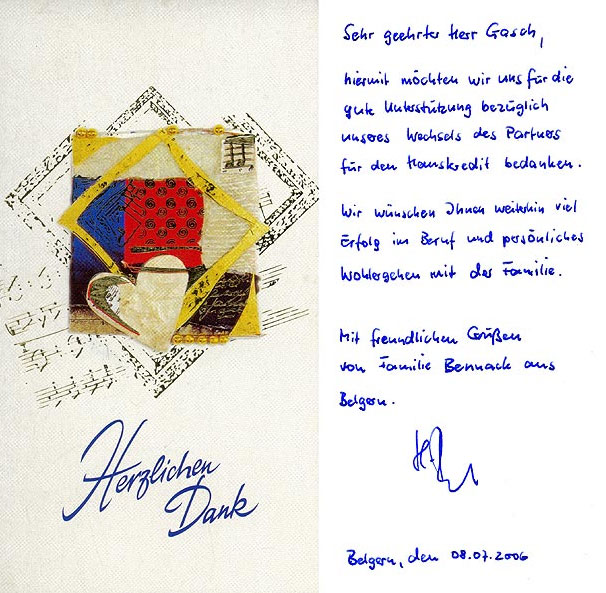 Herzlichen
Dank
Sehr geehrter Herr Gasch,
hiermit möchten wir uns für die
gute Unterstützung bezüglich
unseres Wechsels des Partners
für den Hauskredit bedanken.
Wir wünschen Ihnen weiterhin viel
Erfolg im Beruf und persönliches
Wohlergehen mit der Familie.
Mit freundlichen Grüßen
von Familie Bennack aus
Belgern.
Belgern, den 08.07.2006